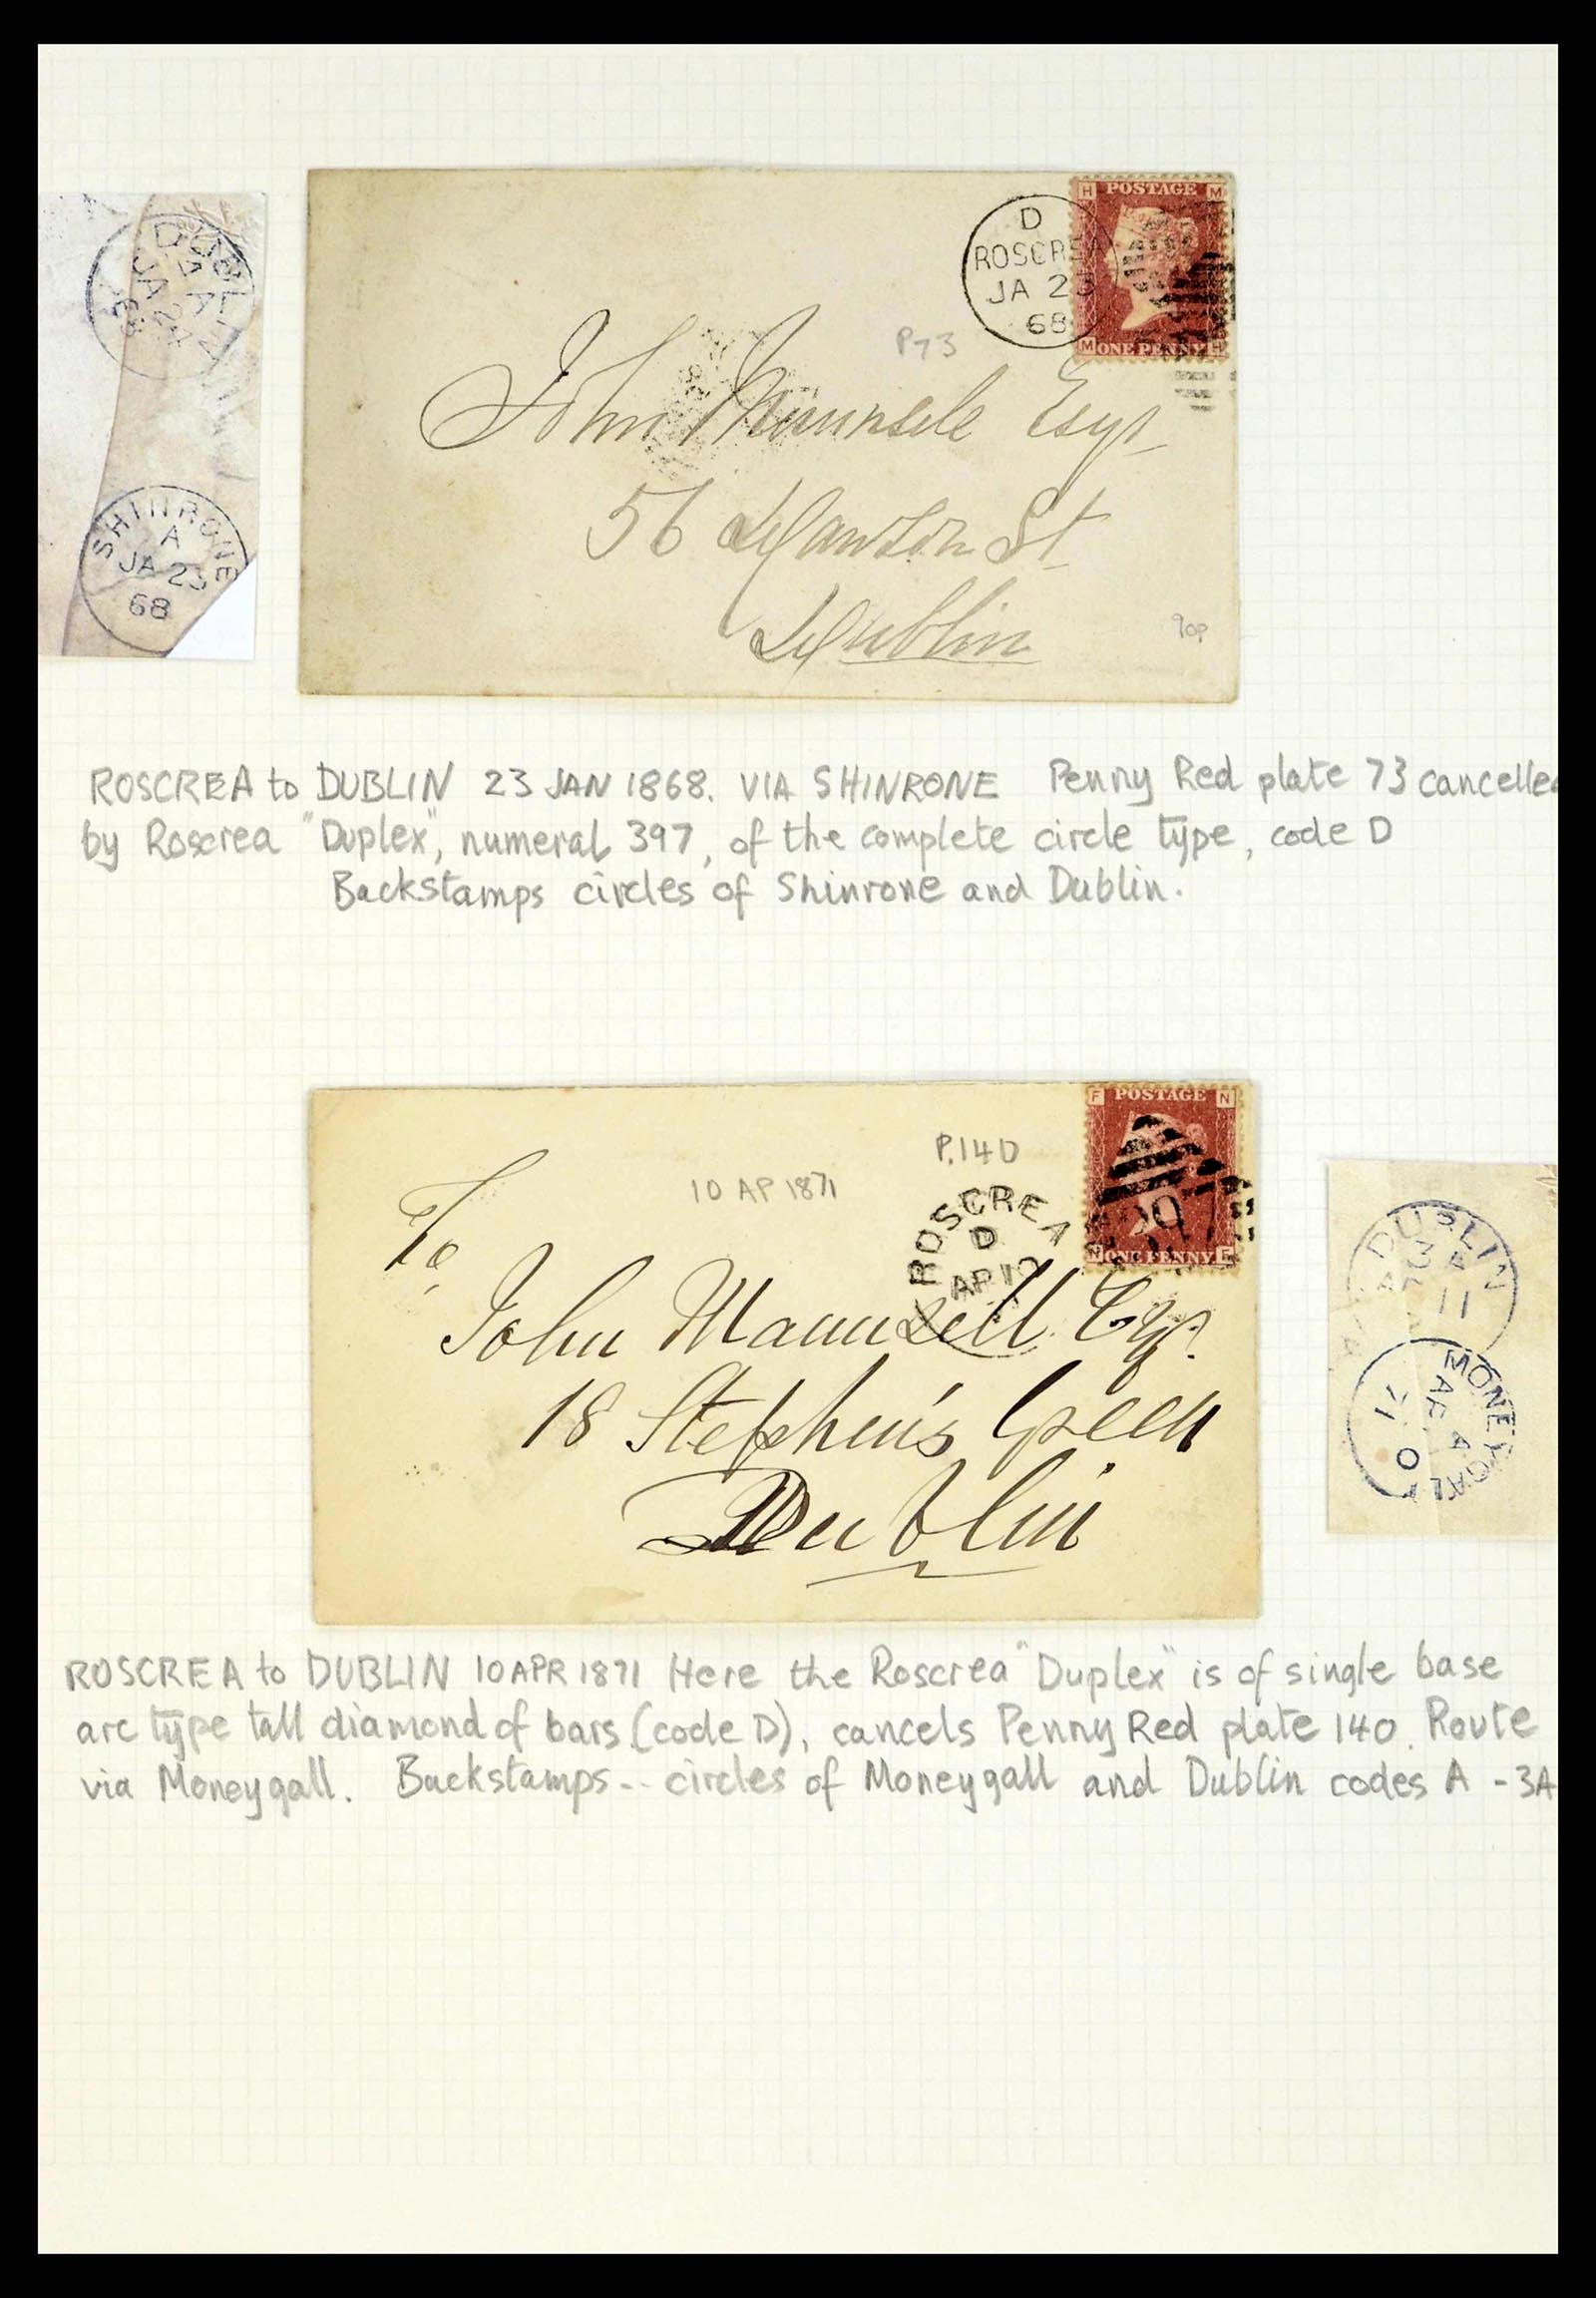 DUBLIN
JA 24
68
SHINRONE
A
JA 23
68
H POSTAGE M
M ONE PENNY H
D
ROSCREA
JA 23
68
P73
John Maunsele Esqr
56 Dawson St
Dublin
90P
ROSCREA to DUBLIN 23 JAN 1868. VIA SHINRONE Penny Red plate 73 cancelle
by Roscrea "Duplex", numeral 397, of the complete circle type, code D
Backstamps circles of Shinrone and Dublin.
F POSTAGE N
N ONE PENNY F
P.140
10 AP 1871
ROSCREA
D
AP 10
To
John Maunsell Esqr.
18 Stephen's Green
Dublin
DUBLIN
11
MONEYGALL
A
AP 10
71
ROSCREA to DUBLIN 10 APR 1871 Here the Roscrea "Duplex" is of single base
arc type tall diamond of bars (code D), cancels Penny Red plate 140. Route
via Moneygall. Backstamps -- circles of Moneygall and Dublin codes A - 3A